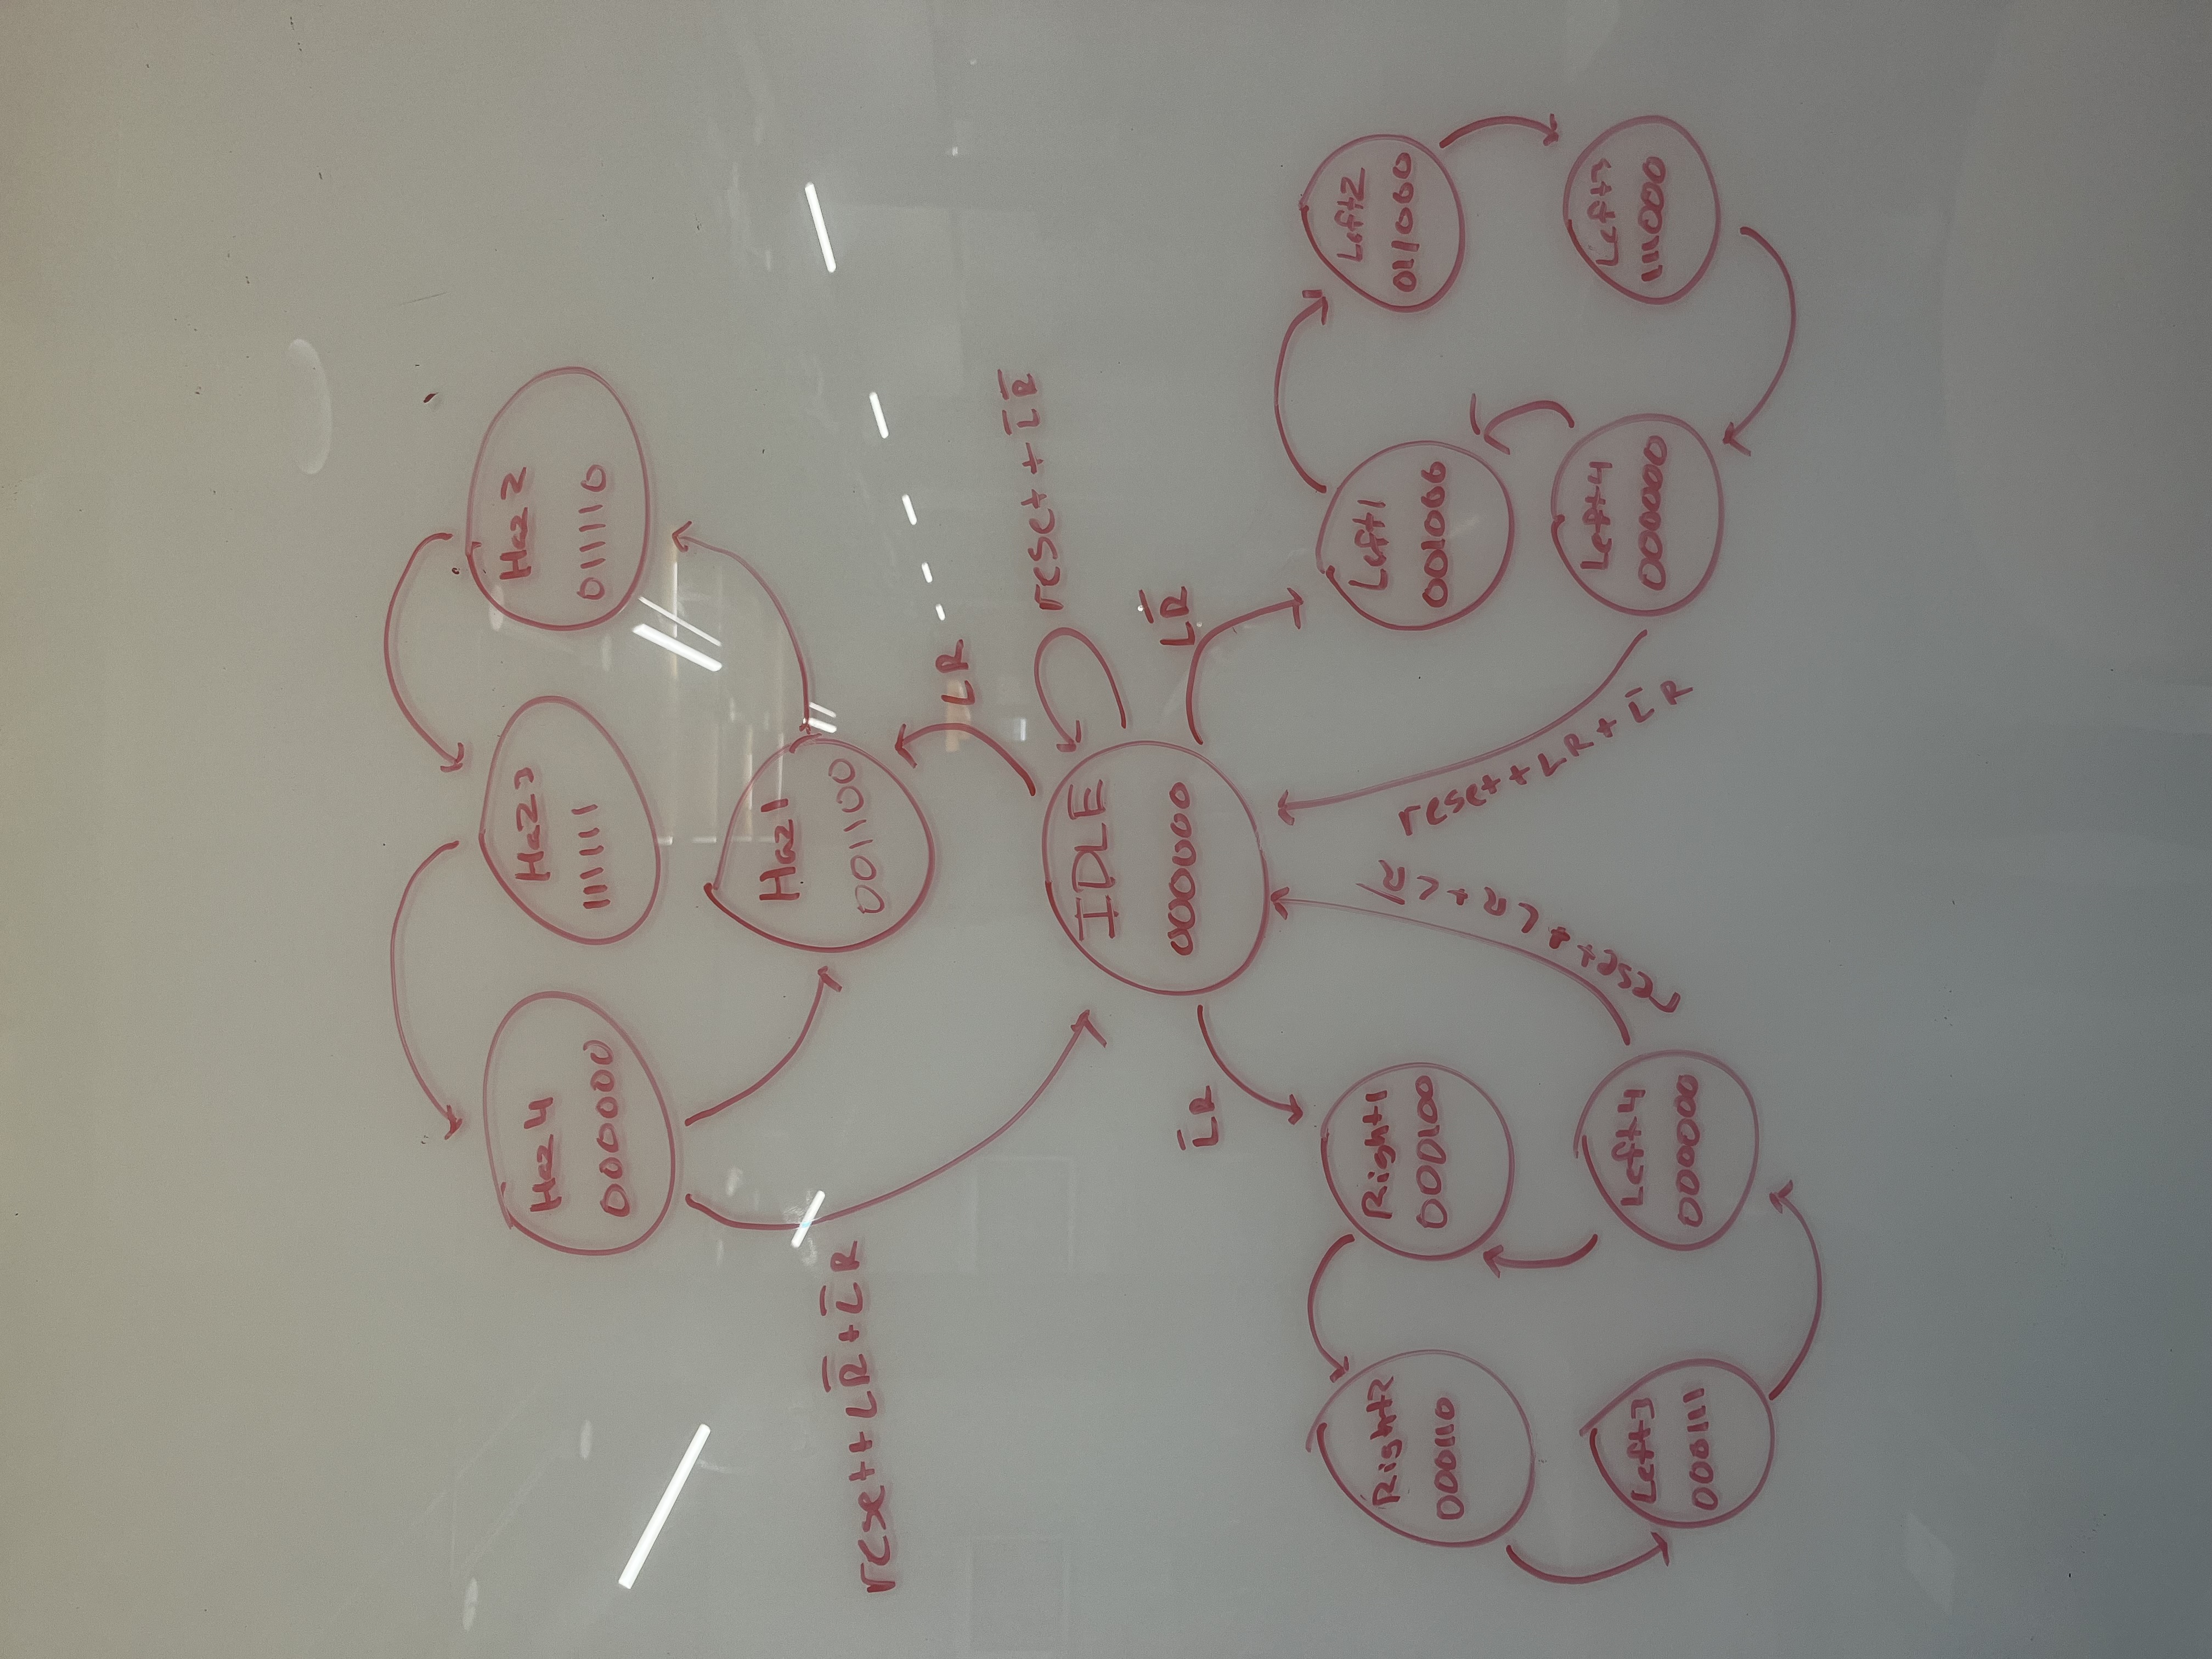 Haz 4
000000
Haz 3
111111
Haz 2
011110
Haz 1
001100
reset + LR̅ + L̅R
LR
reset + L̅R̅
IDLE
000000
L̅R
LR̅
Right2
000110
Right1
000100
Left1
001000
Left2
011000
reset + LR + LR̅
reset + LR + L̅R
Left3
000111
Left4
000000
Left4
000000
Left3
111000